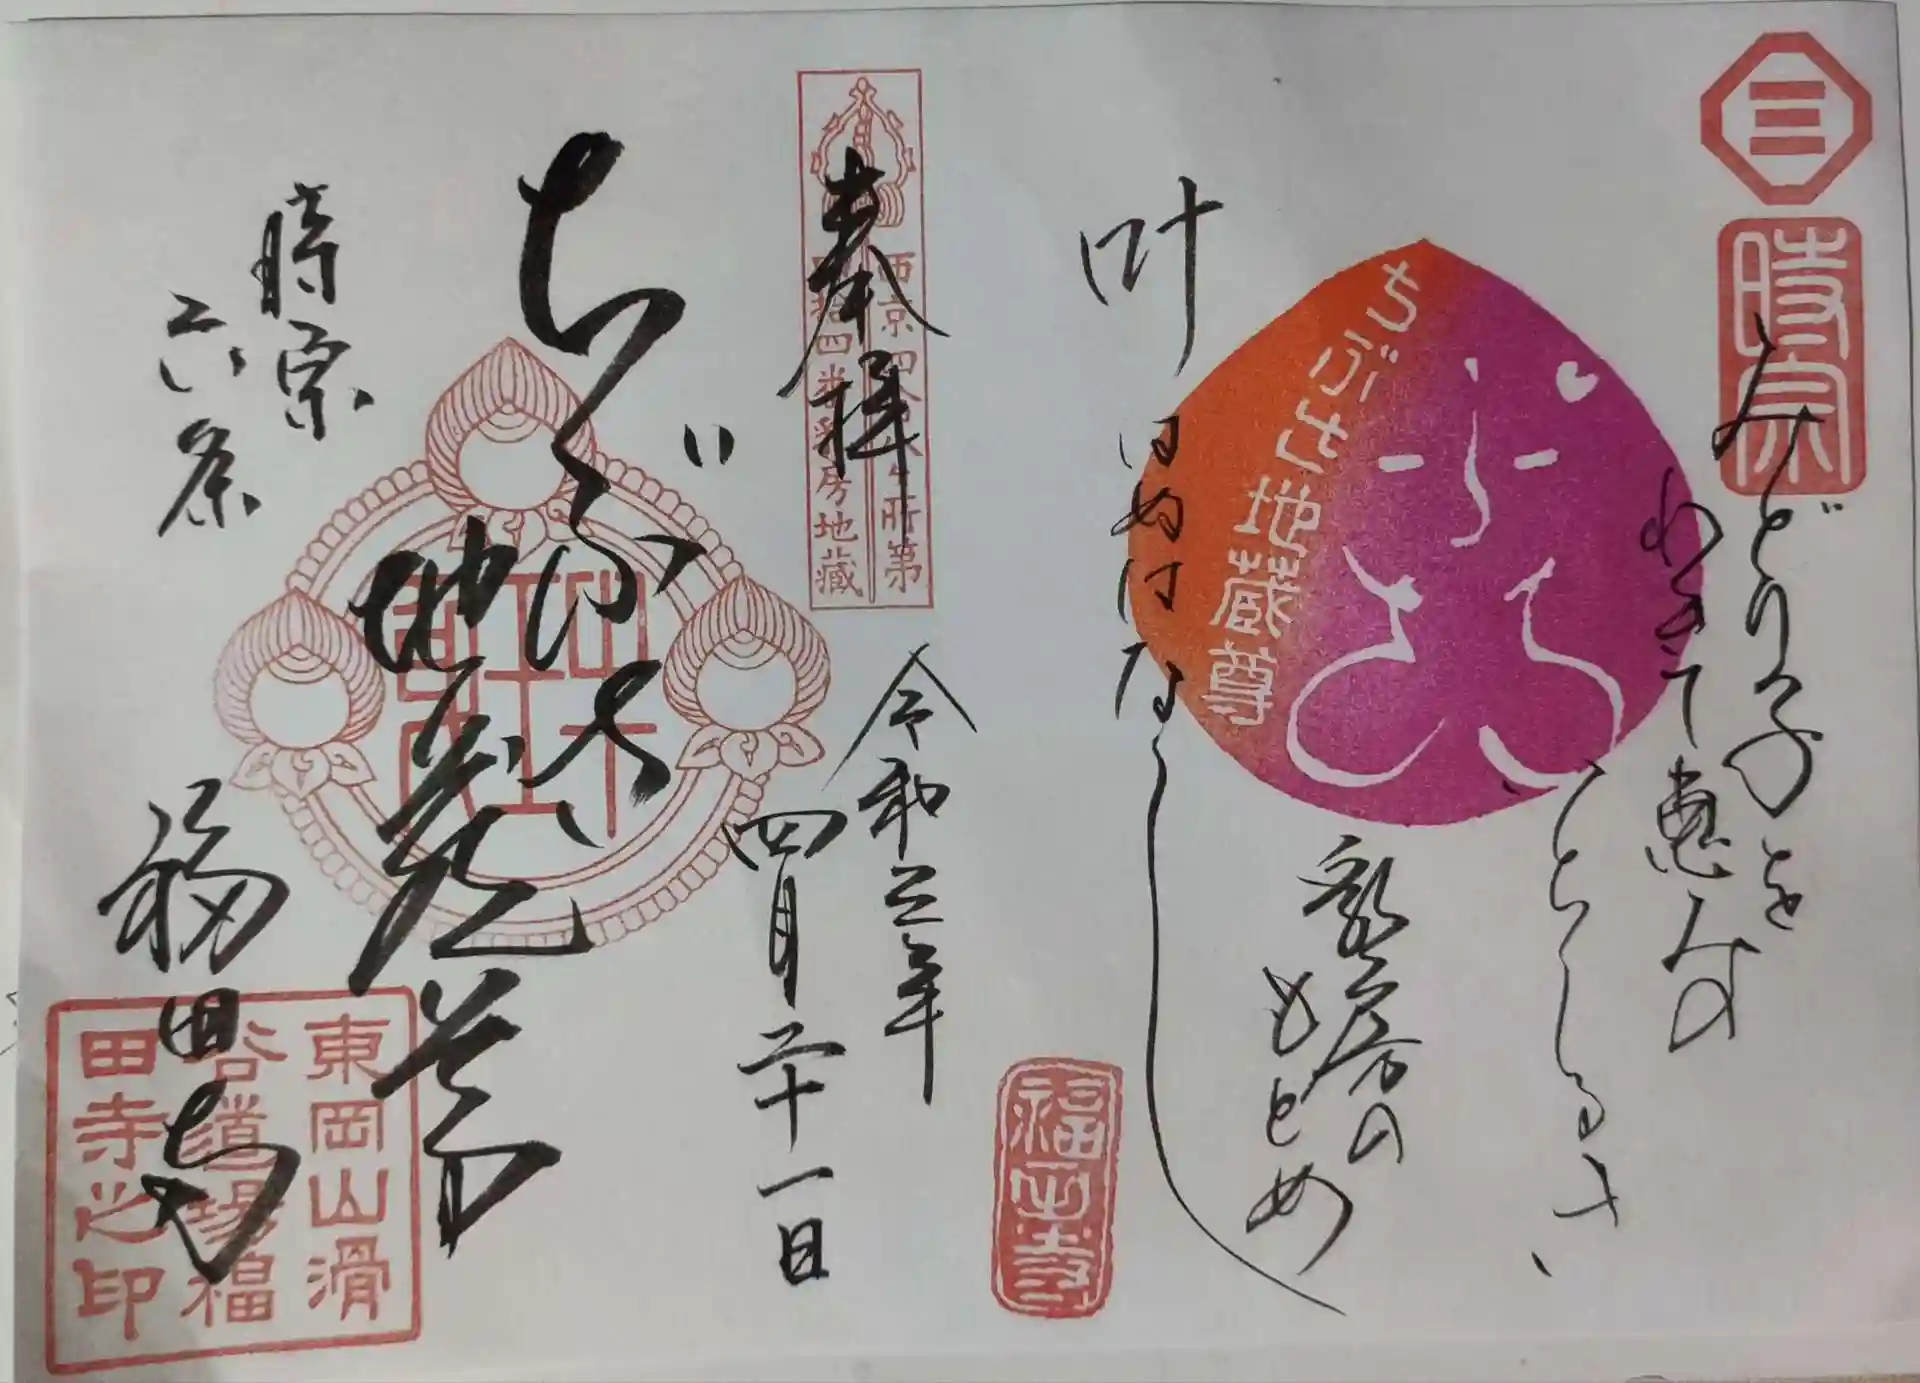 時宗
みどり子を
わきて恵みの
ことしるき、
乳房の
もとめ
叶
はぬはなし
ちぶさ地蔵尊
福田寺
奉拝
西京四
所第
四拾四番乳房地蔵
令和三年
四月二十一日
ちぶさ
地蔵尊
時宗
六条
福田寺
東岡山滑
谷道場福
田寺之印